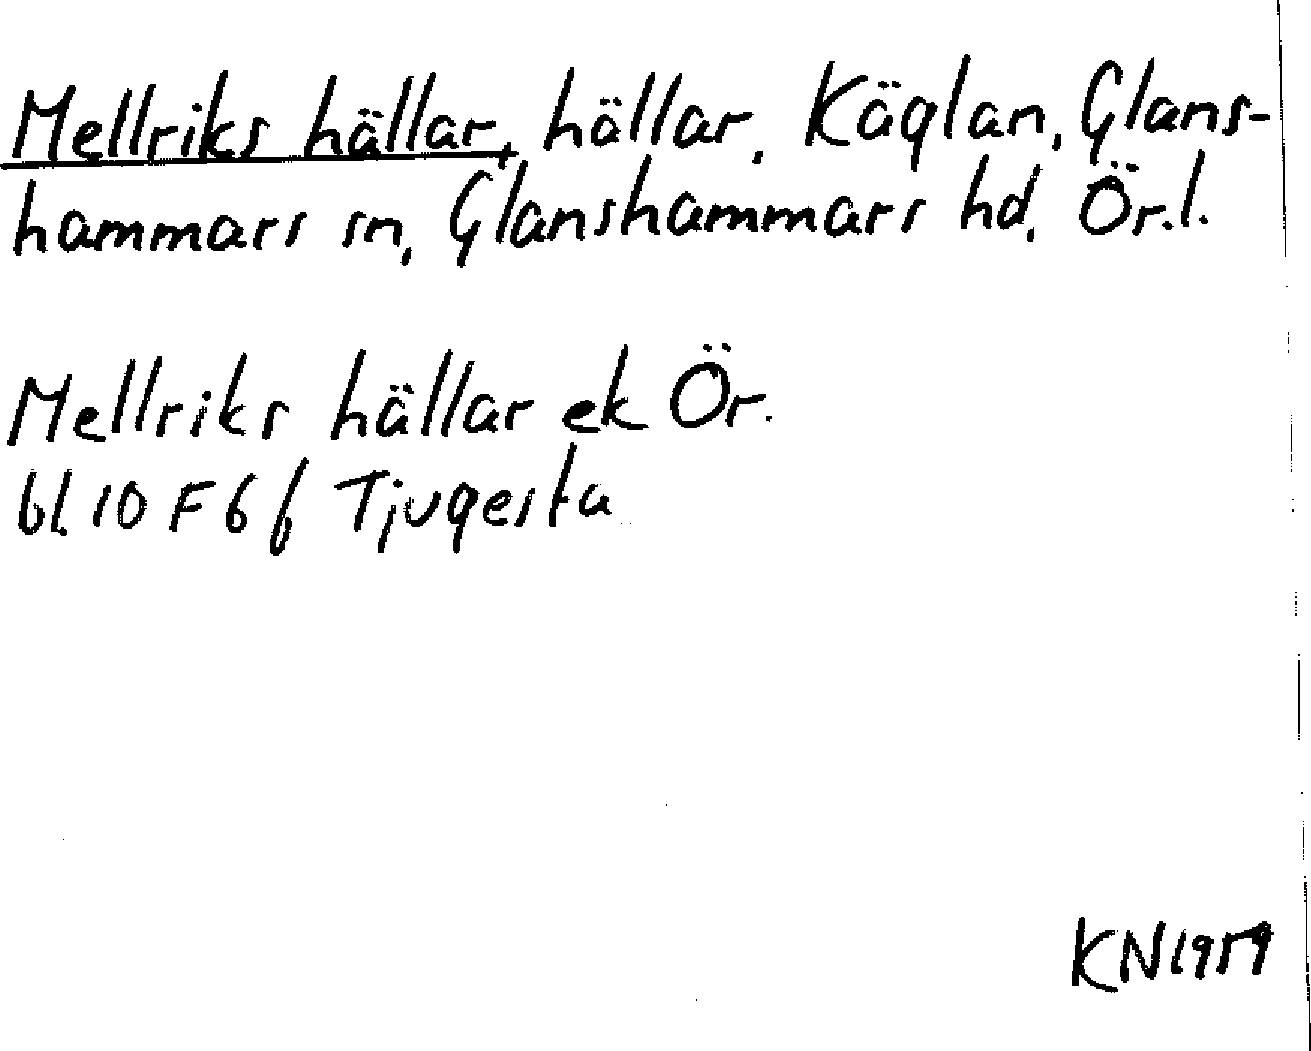 Mellriks hällar, hällar, Käglan, Glans-
hammars sn, Glanshammars hd, Ör.l.
Mellriks hällar ek Ör.
bl. 10 F 6 f Tjugesta
KN1959